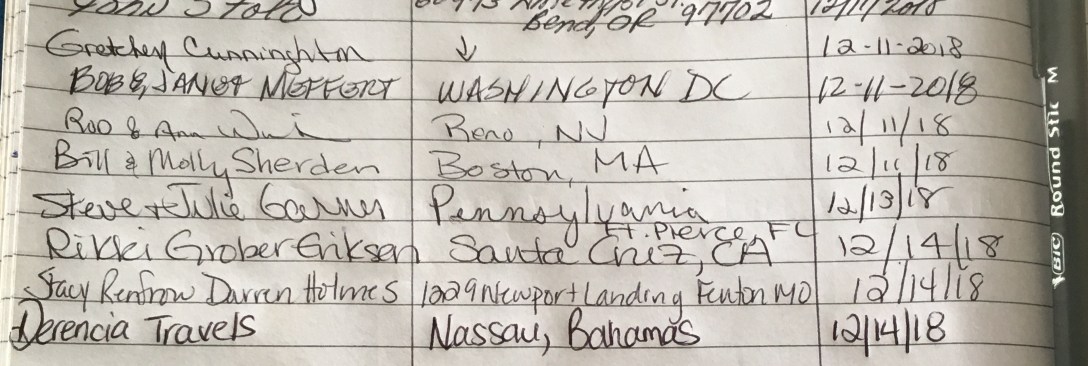 Bend, OR 97702 12/11/2018
Gretchen Cunninghton ↓ 12-11-2018
BOB & JANET MEFFERT WASHINGTON DC 12-11-2018
Rob & Ann Reno, NJ 12/11/18
Bill & Molly Sherden Boston, MA 12/11/18
Steve + Julie Pennsylvania 12/13/18
Ft. Pierce, FL
Rikki Grober Eriksen Santa Cruz, CA 12/14/18
Stacy Renfrow Darren Holmes 1229 Newport Landing Fenton MO 12/14/18
Derencia Travels Nassau, Bahamas 12/14/18
BIC Round Stic M